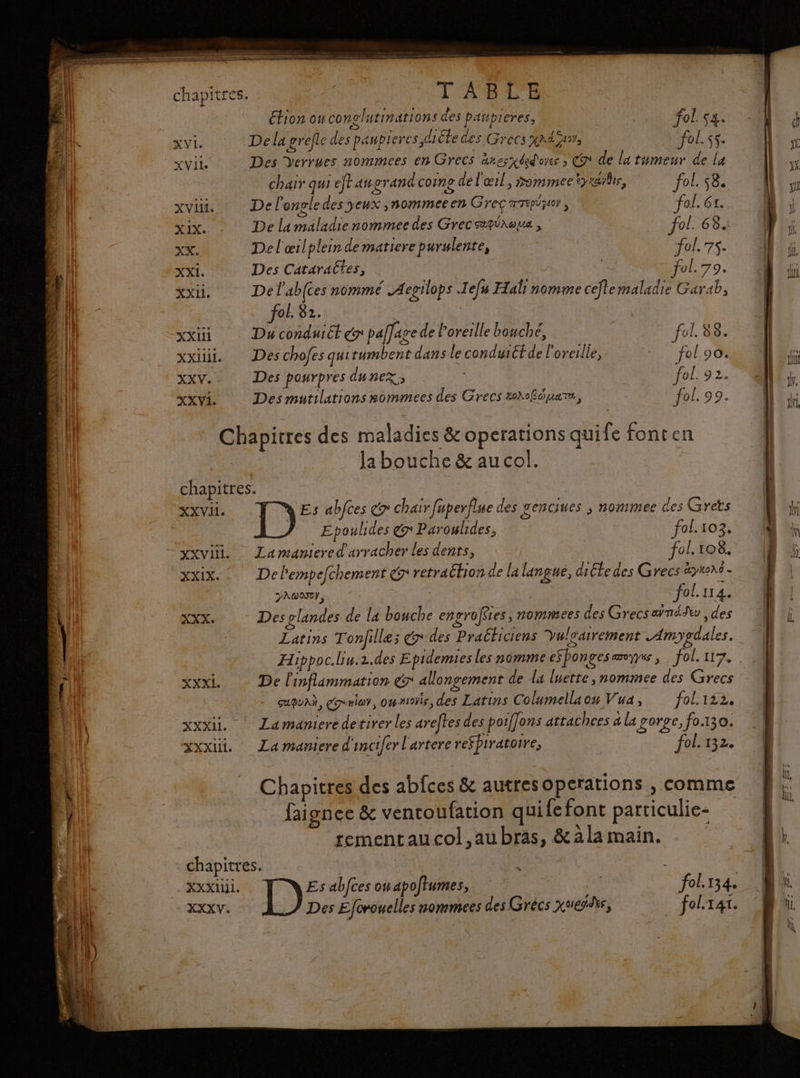 chapitres. TABLE
ction ou conglutinations des paupieres, fol. 54.
xvi. De la gresle des paupieres, dicte des Grecs fol. 55.
xvii. Des verrues nommees en Grecs & de la tumeur de la
chair qui est au grand coing de l'œil, nommee fol. 58.
xviii. De l'ongle des yeux, nommee en Grec fol. 61.
xix. De la maladie nommee des Grec fol. 68.
xx. De l'œil plein de matiere purulente, fol. 75.
xxi. Des Cataractes, fol. 79.
xxii. De l'absces nommé Aegilops. Iesu Hali nomme ceste maladie Garab,
fol. 82.
xxiii Du conduict & passage de l'oreille bouché, fol. 88.
xxiiii. Des choses qui tumbent dans le conduict de l'oreille, fol 90.
xxv. Des pourpres du nez, fol. 92.
xxvi. Des mutilations nommees des Grecs fol. 99.
Chapitres des maladies & operations qui se font en
la bouche & au col.
chapitres.
xxvii. DEs absces & chair superflue des genciues, nommee des Grecs
Epoulides & Paroulides, fol. 103.
xxviii. La maniere d'arracher les dents, fol. 108.
xxix. De l'empeschement & retraction de la langue, dicte des Grecs
fol. 114.
xxx. Des glandes de la bouche engrossies, nommees des Grecs , des
Latins Tonsilles & des Practiciens vulgairement Amygdales.
Hippoc. liu. 2. des Epidemies les nomme esponges , fol. 117.
xxxi. De l'inflammation & allongement de la luette, nommee des Grecs
, ou , des Latins Columella ou Vua, fol. 122.
xxxii. La maniere de tirer les arestes des poissons attachees à la gorge, fo. 130.
xxxiii. La maniere d'inciser l'artere respiratoire, fol. 132.
Chapitres des absces & autres operations, comme
saignee & ventousation qui se font particulie-
rement au col, au bras, & à la main.
chapitres.
xxxiiij. DEs absces ou apostumes, fol. 134.
xxxv. Des Escrouelles nommees des Grecs fol. 141.